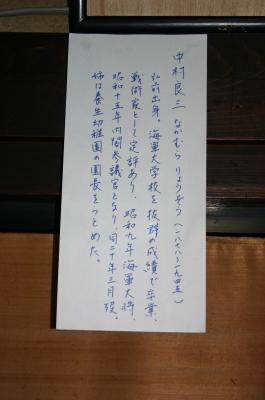 中村良三 なかむら りょうぞう (一八七八〜一九四五)
弘前出身。海軍大学校を抜群の成績で卒業、
戦術家として定評あり、昭和九年海軍大将、
昭和十五年内閣参議官となり、同二十年三月歿。
姉は養生幼稚園の園長をつとめた。